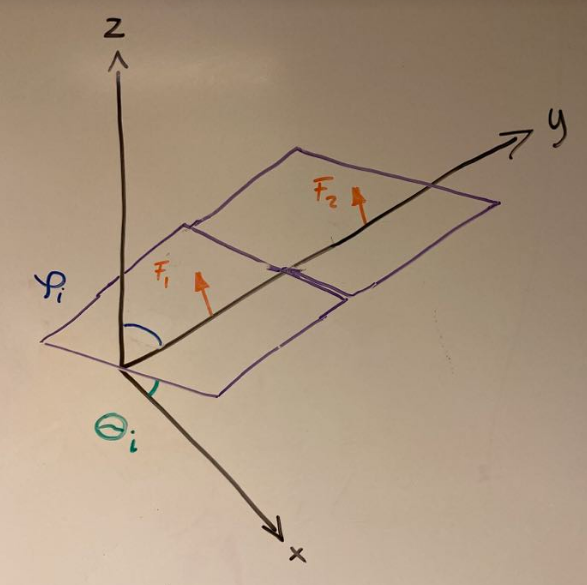 z
y
F₂
F₁
φᵢ
Θᵢ
x